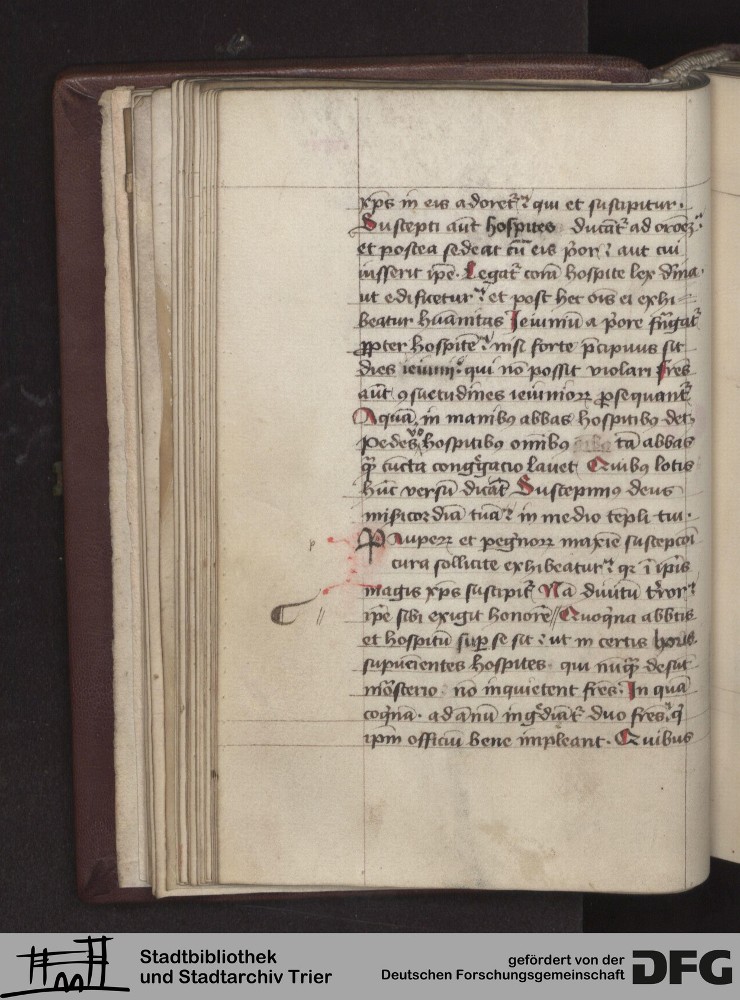 xp̄s in eis adoret᷑ qui et suscipitur·
Suscepti aūt hospites ducāt᷑ ad oroēꝫ
et postea sedeat cū eis p̄or aut cui
iusserit ip̄e· Legat᷑ corā hospite lex diīna·
ut edificetur et post hec oīs ei exhi=
beatur huāīnitas Ieiuniū a p̄ore frāngat᷑
ꝓpter hospitē nisi forte p̄cipuus sit
dies ieiunij qui nō possit violari Fr̄es
aūt ꝯsuetudines ieiunioꝝ ꝓsequant᷑
Aquā in manibꝫ abbas hospitibꝫ det
pedes hospitibꝫ omībꝫ tā abbas
q̄ cūcta congregacio lauet Quibꝫ lotis
hūc versū dicāt Suscepimꝫ deus
misericordiā tuā in medio tēpli tui·
Pauperꝝ et pegrinoꝝ maxīe suscepcōi
cura sollicite exhibeatur qꝛ ī ip̄is
magis xp̄s suscipit᷑ Nā diuitū terror
ip̄e sibi exigit honorē // Quoq̄na abbatis
et hospitū sup̄ se sit ut in certis horis
supuenientes hospites· qui nūq̄ desūt
mōasterio nō inquietent fr̄es In quā
coq̄na· ad annū ingrediāt᷑ duo fr̄es q̄
ip̄m officiū bene impleant· Quibus
Stadtbibliothek
und Stadtarchiv Trier
gefördert von der
Deutschen Forschungsgemeinschaft
DFG